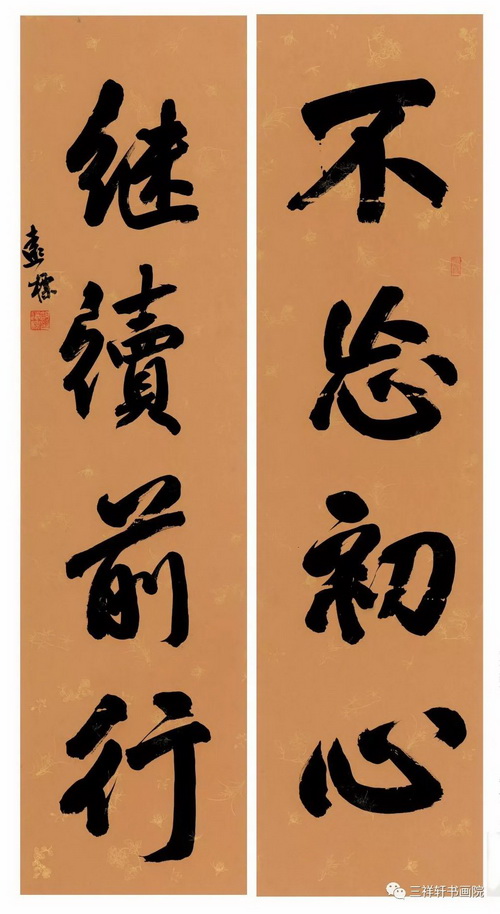 不忘初心
继續前行
三祥轩书画院